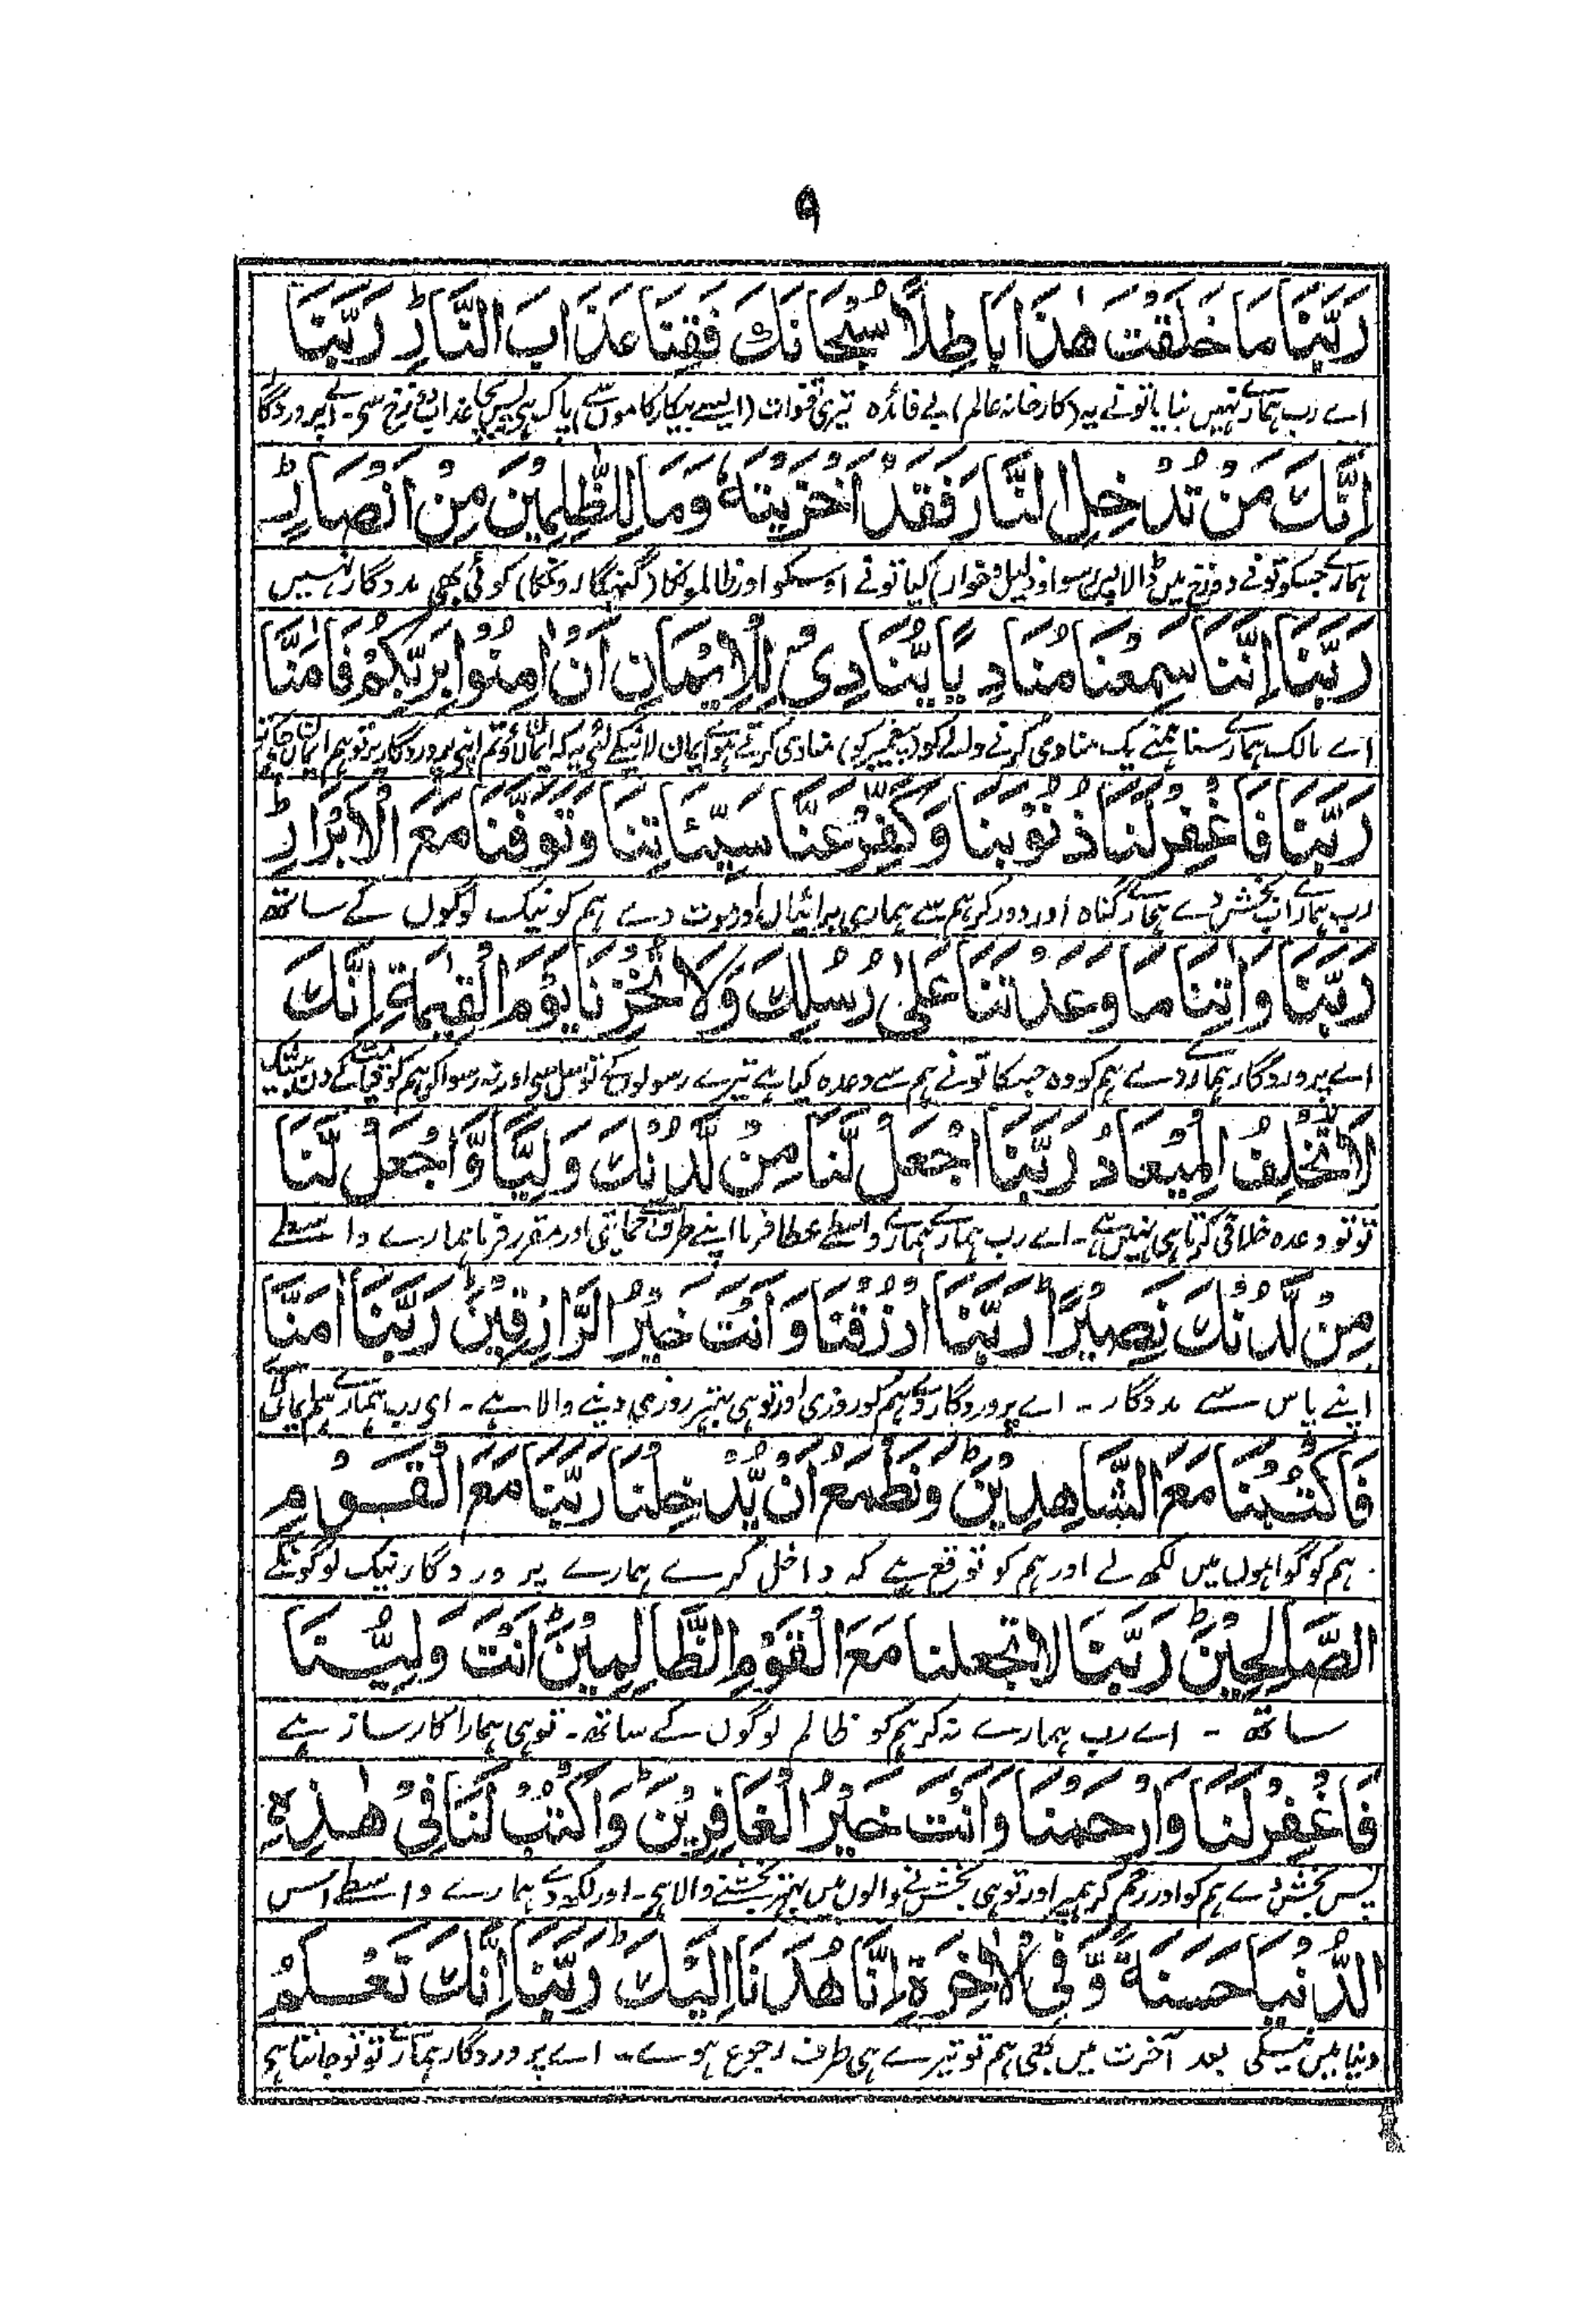 ۹
رَبَّنَا مَا خَلَقْتَ هٰذَا بَاطِلًا سُبْحَانَكَ فَقِنَا عَذَابَ النَّارِ ؕ رَبَّنَا
اے رب ہمارے نہیں بنایا تونے یہ (کارخانہ عالم) بے فائدہ تیری تو ذات (ایسے بیکار کاموں سے) پاک ہی پس بچا عذاب دوزخ سی۔ اے پروردگا
اِنَّكَ مَنْ تُدْخِلِ النَّارَ فَقَدْ اَخْزَيْتَهٗ ؕ وَمَا لِلظّٰلِمِيْنَ مِنْ اَنْصَارٍ ؕ
ہمارے جسکو تونے دوزخ میں ڈالا پس رسوا (و ذلیل و خوار) کیا تونے اوسکو اور ظالمونکا (گنہگارونکا) کوئی بھی مددگار نہیں
رَبَّنَا اِنَّنَا سَمِعْنَا مُنَادِيًا يُّنَادِىْ لِلْاِيْمَانِ اَنْ اٰمِنُوْا بِرَبِّكُمْ فَاٰمَنَّا
اے مالک ہمارے سنا ہمنے یک منادی کرنے والے کو (پیغمبر کو) منادی کرتے ہوے ایمان لانیکے لئی یہ کہ ایمان لاؤ تم اپنی پروردگار پر تو ہم ایمان
رَبَّنَا فَاغْفِرْ لَنَا ذُنُوْبَنَا وَكَفِّرْ عَنَّا سَيِّئَاتِنَا وَتَوَفَّنَا مَعَ الْاَبْرَارِ ؕ
رب ہمارے اب بخش دے ہمارے گناہ اور دور کر ہم سے ہماری برائیاں اور موت دے ہم کو نیک لوگوں کے ساتھ
رَبَّنَا وَاٰتِنَا مَا وَعَدْتَّنَا عَلٰى رُسُلِكَ وَلَا تُخْزِنَا يَوْمَ الْقِيٰمَةِ اِنَّكَ
اے پروردگار ہمارے دے ہم کو وہ جسکا تونے ہم سے وعدہ کیا ہے تیرے رسولوں کے توسل سی اور نہ رسوا کر ہم کو قیامت کے دن بیشک
لَا تُخْلِفُ الْمِيْعَادُ رَبَّنَا اجْعَلْ لَّنَا مِنْ لَّدُنْكَ وَلِيًّا وَّاجْعَلْ لَّنَا
تو تو وعدہ خلافی کرتا ہی نہیں ہے۔ اے رب ہمارے ہمارے واسطے عطا فرما اپنے طرف سے حمایتی اور مقرر فرما ہمارے واسطے
مِنْ لَّدُنْكَ نَصِيْرًا ؕ رَبَّنَا ارْزُقْنَا وَاَنْتَ خَيْرُ الرَّازِقِيْنَ ؕ رَبَّنَا اٰمَنَّا
اپنے پاس سے مددگار۔ اے پروردگار دے ہم کو روزی اور تو ہی بہتر روزی دینے والا ہے۔ ای رب ہمارے ہم ایمان لائے
فَاكْتُبْنَا مَعَ الشَّاهِدِيْنَ ؕ وَنَطْمَعُ اَنْ يُّدْخِلَنَا رَبَّنَا مَعَ الْقَوْمِ
ہم کو گواہوں میں لکھ لے اور ہم کو توقع ہے کہ داخل کرے ہمارے پروردگار نیک لوگونکے
الصَّالِحِيْنَ ؕ رَبَّنَا لَا تَجْعَلْنَا مَعَ الْقَوْمِ الظَّالِمِيْنَ ؕ اَنْتَ وَلِيُّنَا
ساتھ ۔ اے رب ہمارے نہ کر ہم کو ظالم لوگوں کے ساتھ۔ تو ہی ہمارا کارساز ہے
فَاغْفِرْ لَنَا وَارْحَمْنَا وَاَنْتَ خَيْرُ الْغَافِرِيْنَ ؕ وَاكْتُبْ لَنَا فِىْ هٰذِهِ
پس بخش دے ہم کو اور رحم کر ہمپر اور تو ہی بخشنے والوں میں بہتر بخشنے والا ہی۔ اور لکھ دے ہمارے واسطے اس
الدُّنْيَا حَسَنَةً وَّفِى الْاٰخِرَةِ اِنَّا هُدْنَا اِلَيْكَ ؕ رَبَّنَا اِنَّكَ تَعْلَمُ
دنیا میں نیکی بعد آخرت میں بھی ہم تو تیرے ہی طرف رجوع ہوے۔ اے پروردگار ہمارے تو تو جانتا ہی